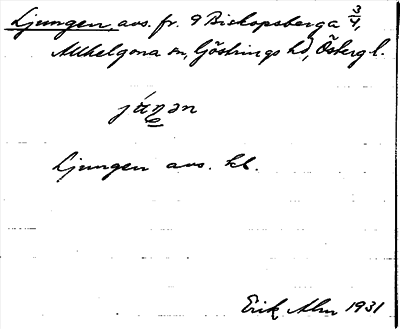 Ljungen, avs. fr. 9 Biskopsberga 3/4,
Allhelgona sn, Göstrings hd, Östergl.
Ljungen avs. kb.
Erik Alm 1931